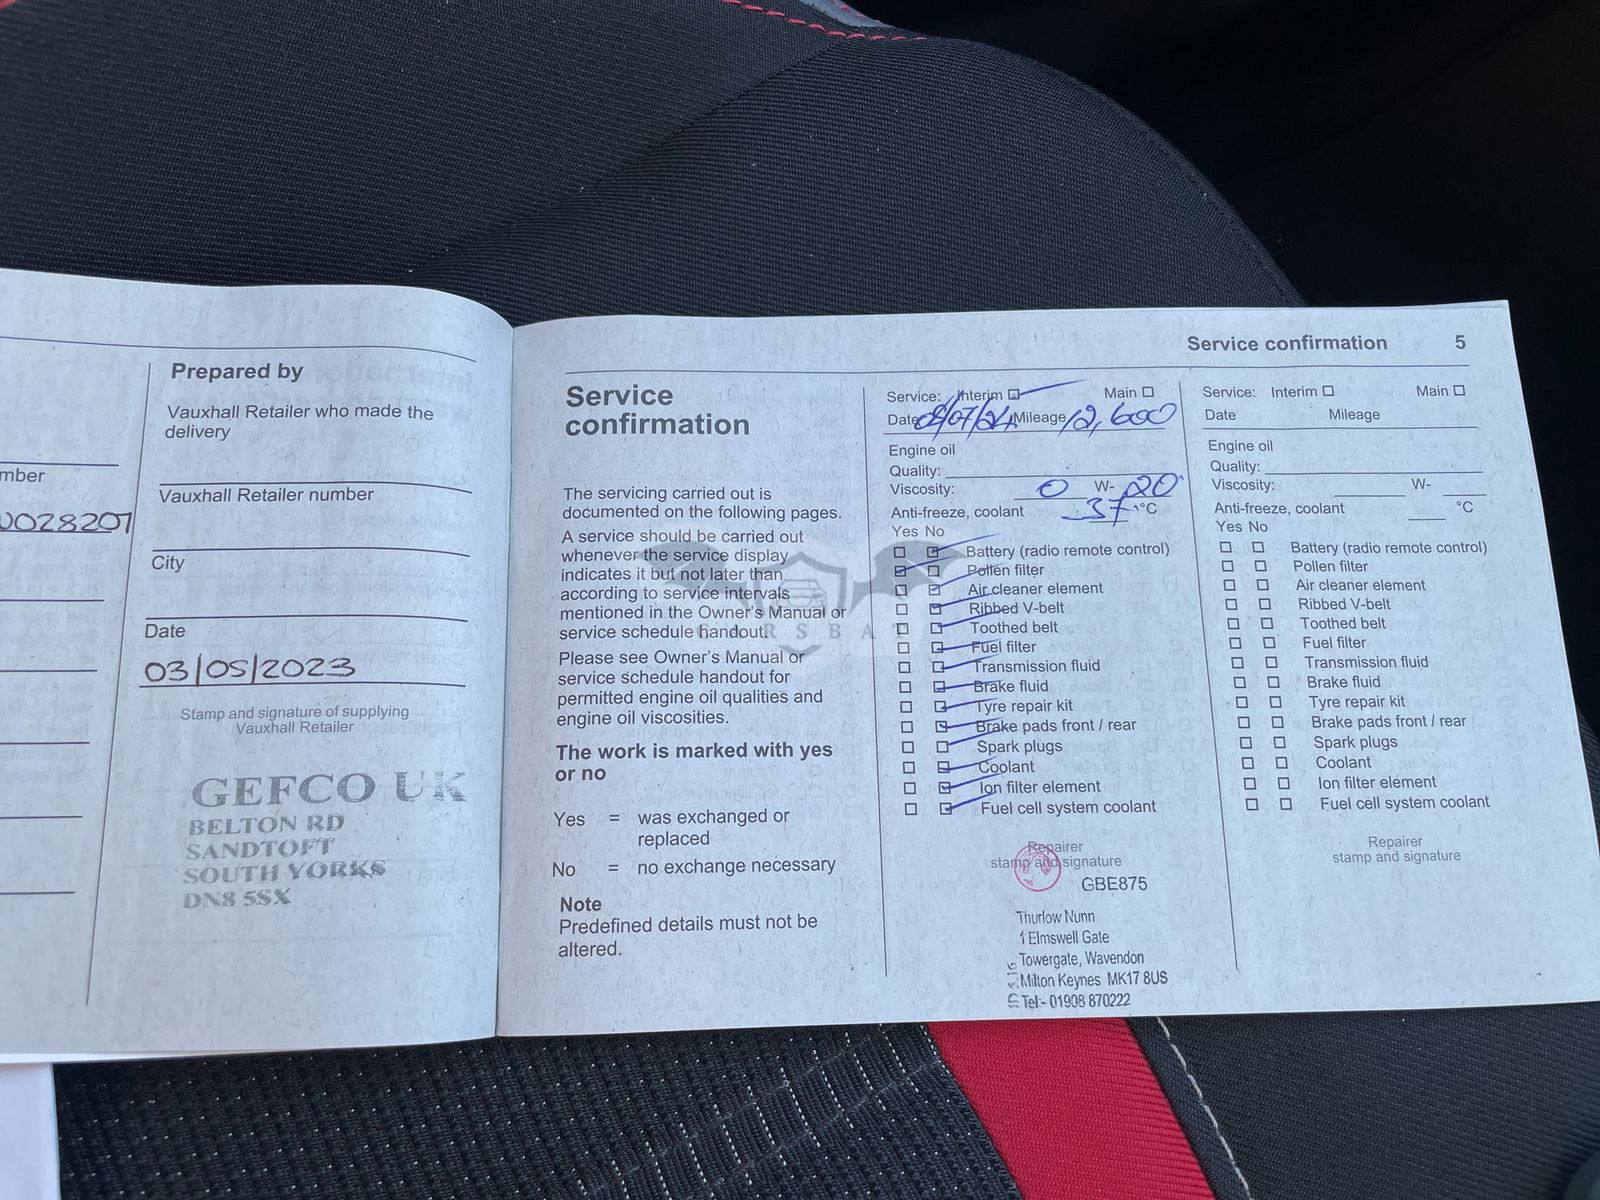 mber
0028207
Prepared by
Vauxhall Retailer who made the
delivery
Vauxhall Retailer number
City
Date
03/05/2023
Stamp and signature of supplying
Vauxhall Retailer
GEFCO UK
BELTON RD
SANDTOFT
SOUTH YORKS
DN8 5SX
Service confirmation 5
Service
confirmation
The servicing carried out is
documented on the following pages.
A service should be carried out
whenever the service display
indicates it but not later than
according to service intervals
mentioned in the Owner's Manual or
service schedule handout.
Please see Owner's Manual or
service schedule handout for
permitted engine oil qualities and
engine oil viscosities.
The work is marked with yes
or no
Yes = was exchanged or
replaced
No = no exchange necessary
Note
Predefined details must not be
altered.
Service: Interim Main
Date 08/07/24 Mileage 12,600
Engine oil
Quality:
Viscosity: 0 W- 20
Anti-freeze, coolant -37 °C
Yes No
Battery (radio remote control)
Pollen filter
Air cleaner element
Ribbed V-belt
Toothed belt
Fuel filter
Transmission fluid
Brake fluid
Tyre repair kit
Brake pads front / rear
Spark plugs
Coolant
Ion filter element
Fuel cell system coolant
Repairer
stamp and signature
GBE875
Thurlow Nunn
1 Elmswell Gate
Towergate, Wavendon
Milton Keynes MK17 8US
Tel:- 01908 870222
Service: Interim Main
Date Mileage
Engine oil
Quality:
Viscosity: W-
Anti-freeze, coolant °C
Yes No
Battery (radio remote control)
Pollen filter
Air cleaner element
Ribbed V-belt
Toothed belt
Fuel filter
Transmission fluid
Brake fluid
Tyre repair kit
Brake pads front / rear
Spark plugs
Coolant
Ion filter element
Fuel cell system coolant
Repairer
stamp and signature